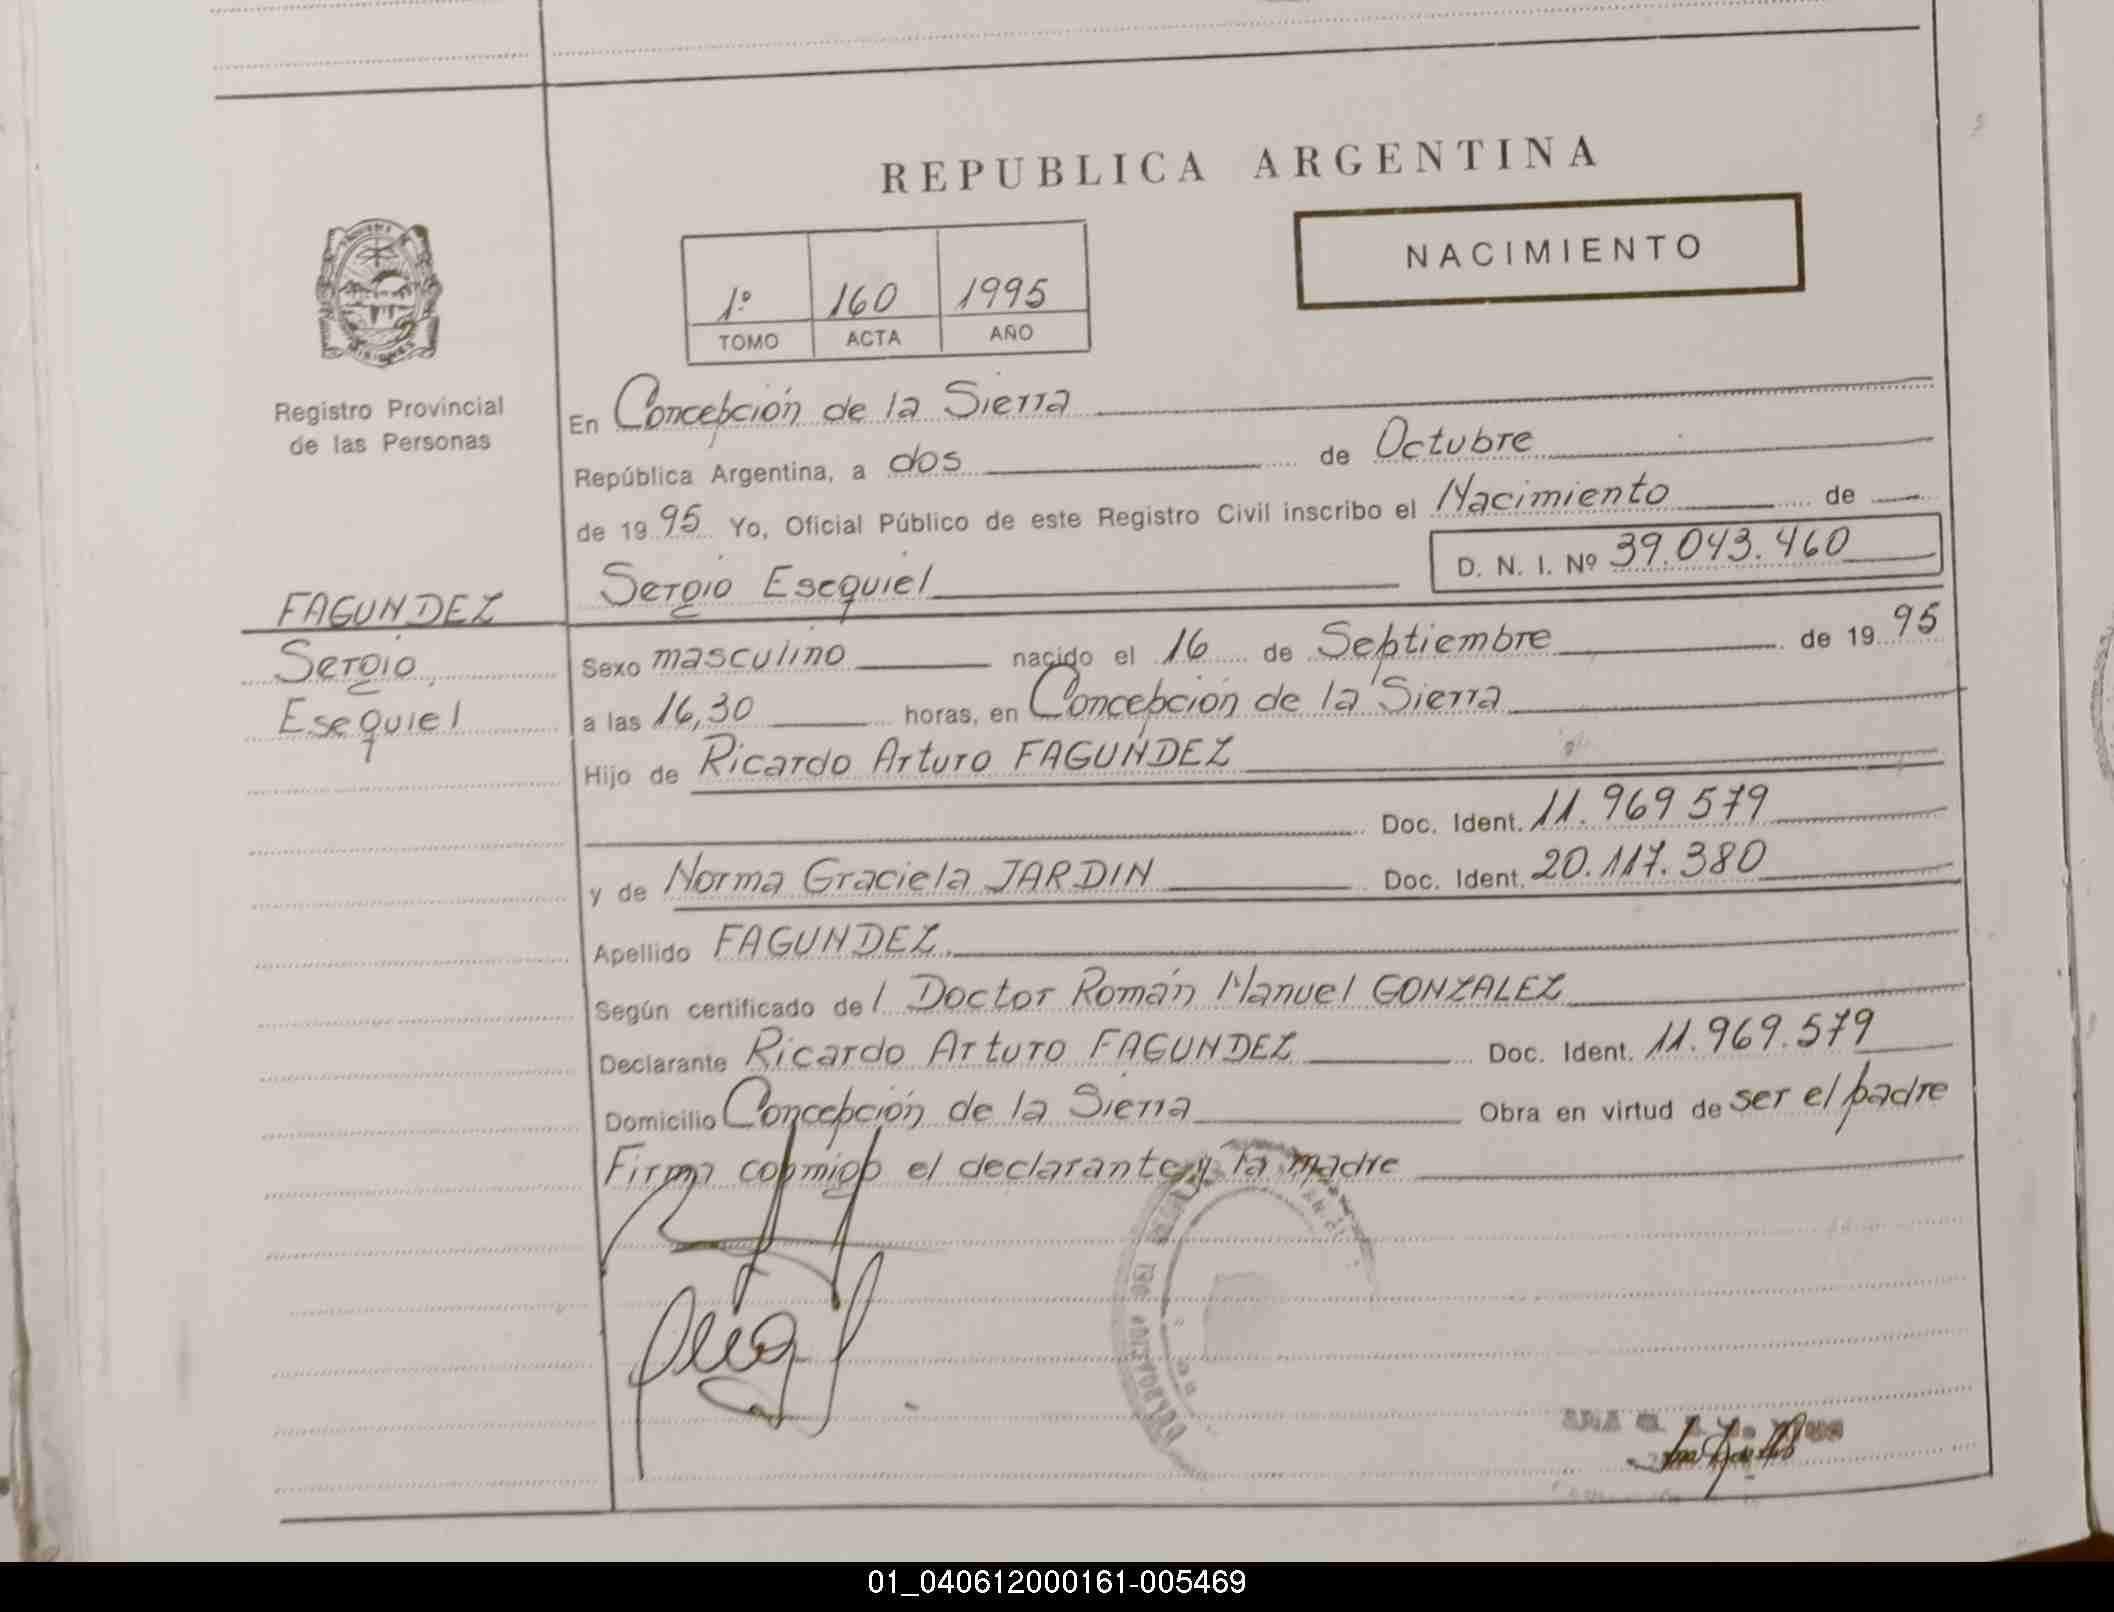 REPUBLICA ARGENTINA
NACIMIENTO
1º 160 1995
TOMO ACTA AÑO
MISIONES
Registro Provincial
de las Personas
En Concepción de la Sierra
República Argentina, a dos de Octubre
de 1995 Yo, Oficial Público de este Registro Civil inscribo el Nacimiento de
D. N. I. Nº 39.043.460
Sergio Esequiel
FAGUNDEZ
Sergio
Esequiel
Sexo masculino nacido el 16 de Septiembre de 1995
a las 16,30 horas, en Concepción de la Sierra
Hijo de Ricardo Arturo FAGUNDEZ
Doc. Ident. 11.969579
y de Norma Graciela JARDIN Doc. Ident. 20.117.380
Apellido FAGUNDEZ
Según certificado del Doctor Román Manuel GONZALEZ
Declarante Ricardo Arturo FAGUNDEZ Doc. Ident. 11.969.579
Domicilio Concepción de la Sierra Obra en virtud de ser el padre
Firma conmigo el declarante y la madre
01_040612000161-005469